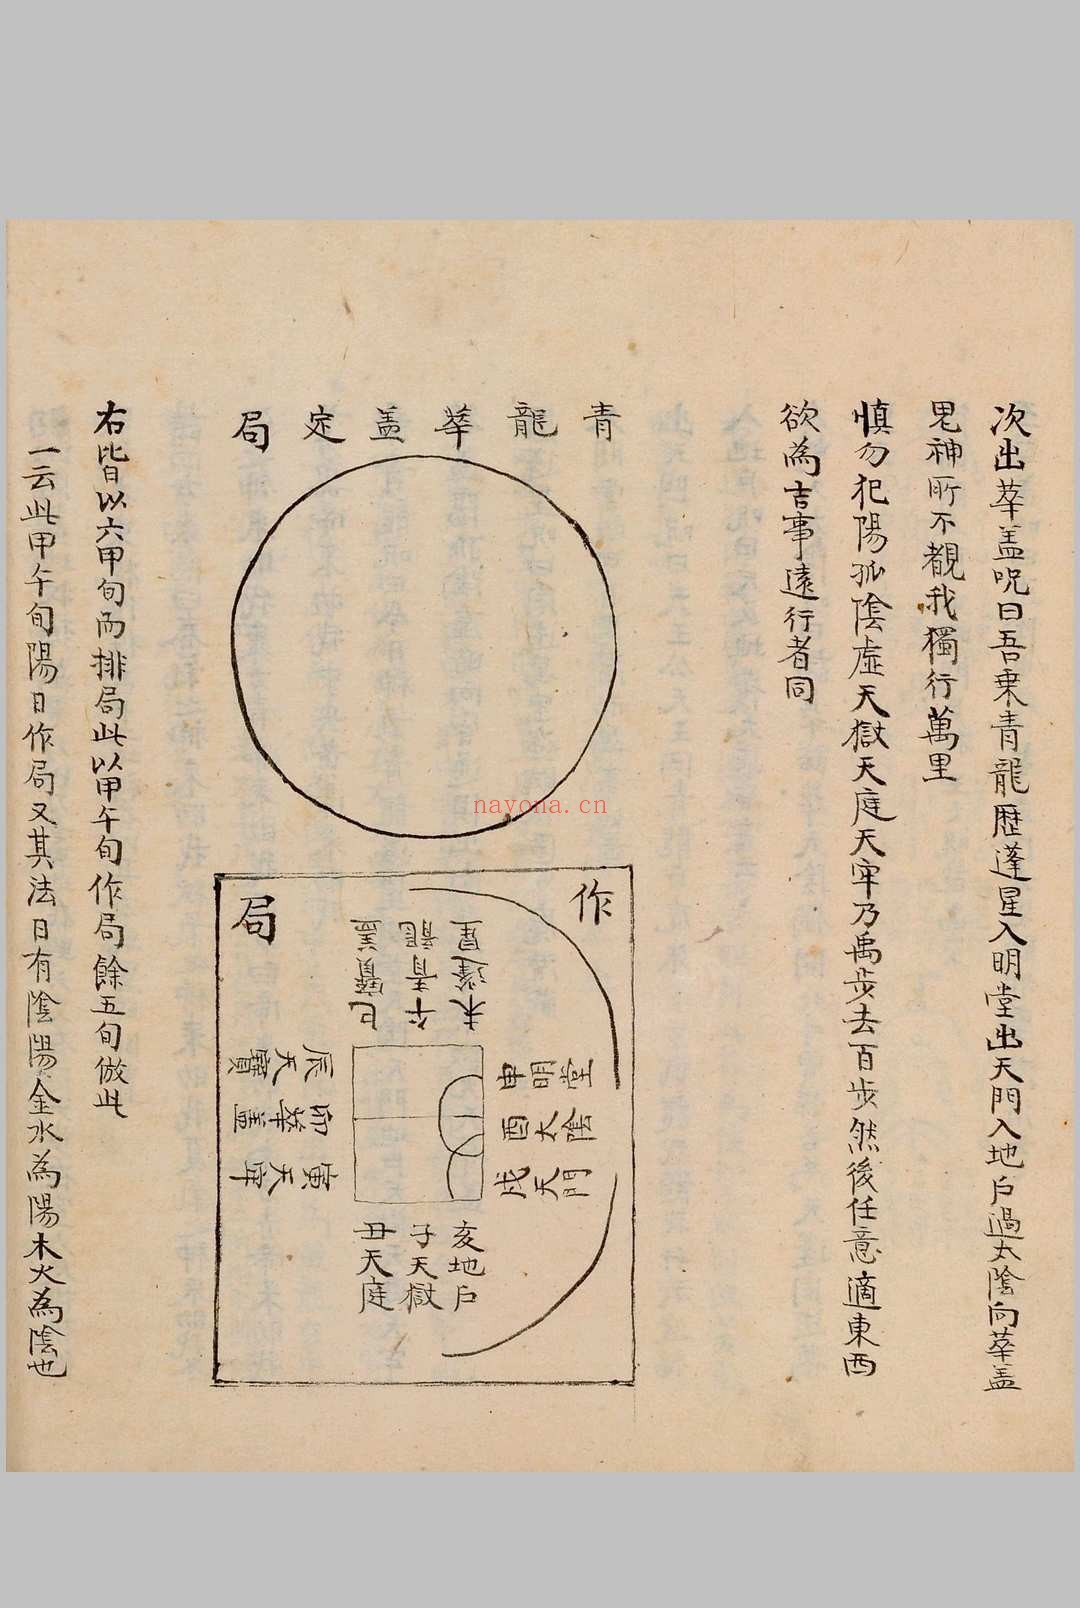 次出華盖呪曰吾乗青龍歷蓬星入明堂出天門入地户過太陰向華盖
鬼神所不覩我獨行萬里
慎勿犯陽孤陰虚天獄天庭天牢乃禹步去百步然後任意適東西
欲為吉事遠行者同
青龍華盖定局
作局
未蓬星
午青龍
巳寶盖
申明堂
酉太陰
戌天門
辰天寶
卯華盖
寅天牢
亥地户
子天獄
丑天庭
右皆以六甲旬而排局此以甲午旬作局餘五旬倣此
一云此甲午旬陽日作局又其法日有陰陽金水為陽木火為陰也
nayona.cn